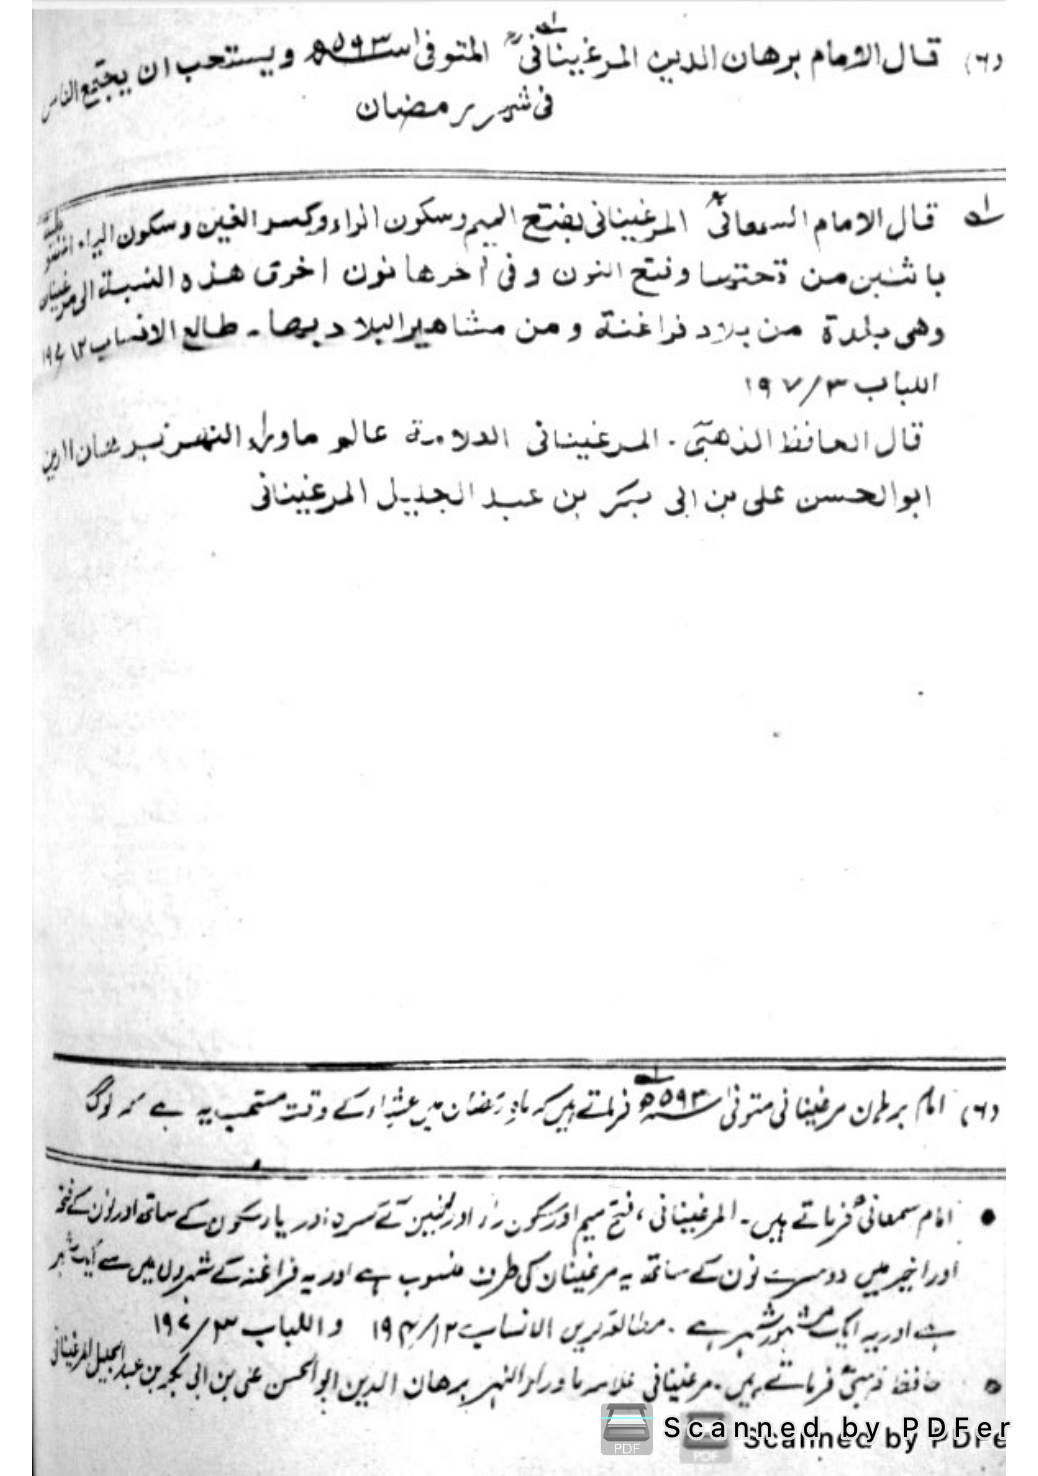 (٦) قال الامام برهان الدين المرغينانی المتوفی ٥٩٣ھ ويستحب ان يجتمع الناس
فی شهر رمضان
قال الامام السمعانی المرغينانی بفتح الميم وسكون الراء وكسر الغين وسكون الياء
باثنين من تحتها وفتح النون وفی آخرها نون اخری هذه النسبة الی مرغينان
وهی بلدة من بلاد فراغنة ومن مشاهير البلاد بها۔ طالع الانساب
اللباب ١٩٧/٣
قال الحافظ الذهبی۔ المرغينانی العلامة عالم ماوراء النهر برهان الدين
ابو الحسن علی بن ابی بكر بن عبد الجليل المرغينانی
(٦) امام برہان مرغینانی متوفی ٥٩٣ھ فرماتے ہیں کہ ماہ رمضان میں عشاء کے وقت مستحب یہ ہے کہ لوگ
● امام سمعانی فرماتے ہیں۔ المرغینانی، فتح میم اور سکون راء اور غین کے کسرہ اور یاء سکون کے ساتھ اور نون کے فتحہ
اور اخیر میں دوسرے نون کے ساتھ یہ مرغینان کی طرف منسوب ہے اور یہ فراغنہ کے شہروں میں سے ایک شہر
ہے اور یہ ایک مشہور شہر ہے۔ مطالعہ کریں الانساب ١٢/ واللباب ٣/
حافظ ذہبی فرماتے ہیں۔ مرغینانی علامہ ماوراء النہر برھان الدین ابو الحسن علی بن ابی بکر بن عبد الجلیل المرغینانی
Scanned by PDFer
Scanned by PDFe
PDF
PDF